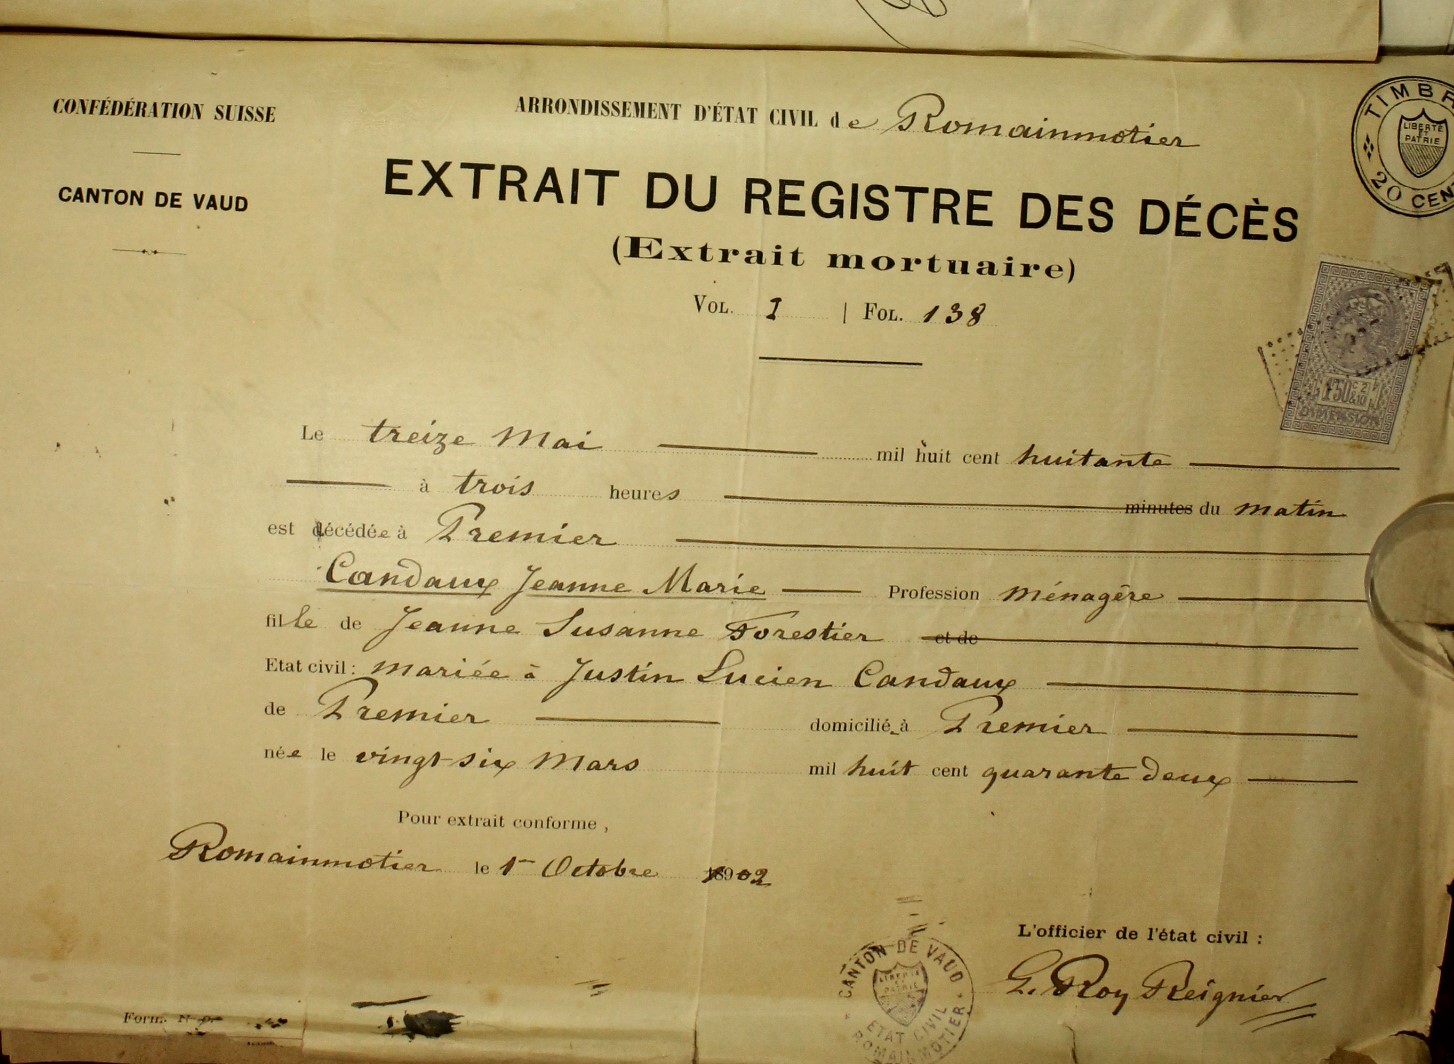 CONFÉDÉRATION SUISSE
CANTON DE VAUD
ARRONDISSEMENT D'ÉTAT CIVIL de Romainmotier
EXTRAIT DU REGISTRE DES DÉCÈS
(Extrait mortuaire)
VOL. I | FOL. 138
TIMBR
LIBERTÉ
ET
PATRIE
20 CEN
DIMENSION
Le treize Mai mil huit cent huitante
à trois heures minutes du matin
est décédée à Premier
Candaux Jeanne Marie Profession ménagère
fille de Jeanne Susanne Forestier et de
Etat civil : mariée à Justin Lucien Candaux
de Premier domicilié à Premier
née le vingt-six Mars mil huit cent quarante deux
Pour extrait conforme,
Romainmotier le 1er Octobre 1902
L'officier de l'état civil :
G. Roy Reignier
CANTON DE VAUD
LIBERTÉ
ET
PATRIE
ETAT CIVIL
ROMAINMOTIER
Form.